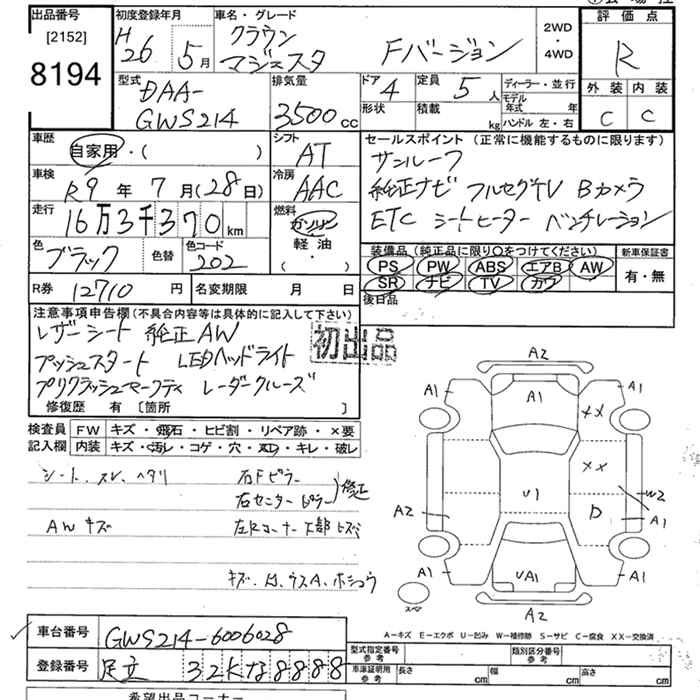 出品番号
[2152]
8194
初度登録年月
H 26年 5月
車名・グレード
クラウン
マジェスタ Fバージョン
2WD
・
4WD
評価点
R
外装 内装
C C
型式
DAA-
GWS214
排気量
3500cc
ドア 4
形状
定員 5人
積載 kg
ディーラー・並行
モデル年式 年
ハンドル 左・右
車歴
自家用・( )
シフト
AT
車検
R9年 7月(28日)
冷房
AAC
走行
16万3千370km
燃料
ガソリン
軽油・
( )
色
ブラック
色替
色コード
202
R券 12710円
名変期限 月 日
セールスポイント(正常に機能するものに限ります)
サンルーフ
純正ナビ フルセグTV Bカメラ
ETC シートヒーター ベンチレーション
装備品(純正品に限り○をつけてください)
PS PW ABS エアB AW
SR ナビ TV カワ
新車保証書
有・無
後日品
注意事項申告欄(不具合内容等は具体的に記入して下さい)
レザーシート 純正AW
プッシュスタート LEDヘッドライト
プリクラッシュセーフティ レーダークルーズ
修復歴 有 〔箇所 〕
初出品
検査員
記入欄
FW キズ・飛石・ヒビ割・リペア跡・×要
内装 キズ・汚レ・コゲ・穴・スレ・キレ・破レ
シート、スレ、ヘタリ
右Fピラー
右センターピラー
修正
AWキズ
左Rコーナー上部ヒズミ
A2
A1 A1
A1
××
××
U1
W2
A2
D
A1
A1 UA1 A1
スペア
A2
A−キズ E−エクボ U−凹み W−補修跡 S−サビ C−腐食 XX−交換済
車台番号 GWS214-6006028
登録番号 足立 32Kな8888
型式指定番号
参考
類別区分番号
参考
車庫証明用
参考
長さ cm 幅 cm 高さ cm
希望出品コーナー